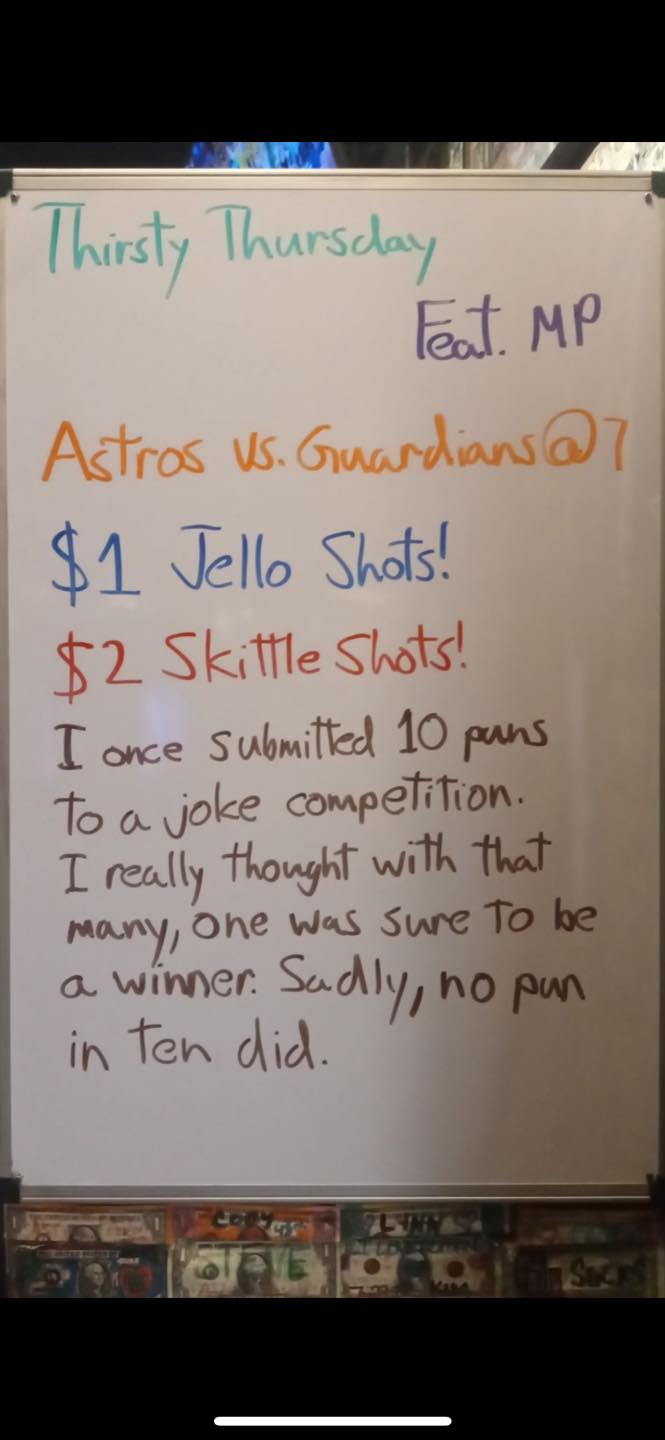 Thirsty Thursday
Feat. MP
Astros vs. Guardians@7
$1 Jello Shots!
$2 Skittle Shots!
I once submitted 10 puns
to a joke competition.
I really thought with that
many, one was sure to be
a winner. Sadly, no pun
in ten did.
CODY LYNN
STEVE Kim SUCKS